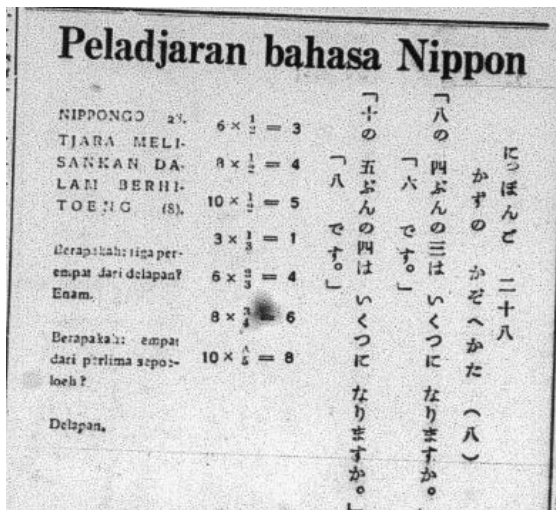 Peladjaran bahasa Nippon
NIPPONGO 28.
TJARA MELI-
SANKAN DA-
LAM BERHI-
TOENG (8).
Berapakah: tiga per-
empat dari delapan?
Enam.
Berapakah: empat
dari perlima sepoe-
loeh?
Delapan.
6 × 1/2 = 3
8 × 1/2 = 4
10 × 1/2 = 5
3 × 1/3 = 1
6 × 2/3 = 4
8 × 3/4 = 6
10 × 4/5 = 8
にっぽんご 二十八
かずの かぞへかた (八)
「八の 四ぶんの三は いくつに なりますか。」
「六 です。」
「十の 五ぶんの四は いくつに なりますか。」
「八 です。」